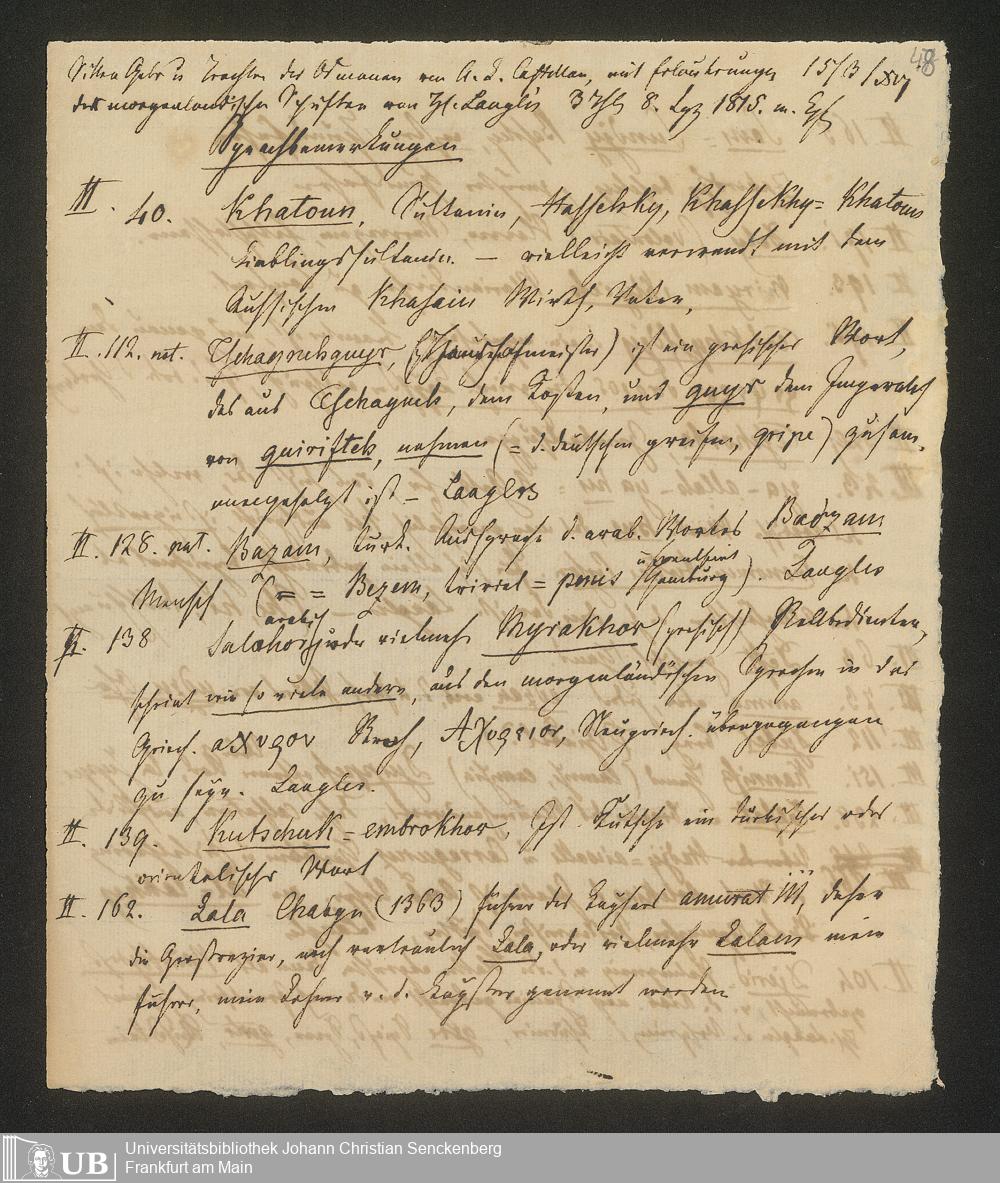 48
Sitten Gebr u Trachten der Osmanen von A. L. Castellan, mit Erläuterungen 15/3 / xvj
des morgenländischen Schriften von Hr. Langlès 3 Thle 8. Lpz 1815. m. Kpf
Sprachbemerkungen
II. 40. Khatoun, Sultanin, Hasseky, Khassekhy = Khatoun
Lieblingssultanin. – vielleicht verwandt mit dem
Russischen Khasain Wirth, Vater,
II. 112. not. Tschagnehguyr, (Haushofmeister) ist ein persisches Wort,
das aus Tschagneh, dem Kosten, und guyr dem Imperativ
von guiriftek, nehmen (= d. deutschen greifen, gripe) zusam-
mengesetzt ist – Langles
II. 128. not. Bazam, türk. Aussprache d. arab. Wortes
Mensch (= = Bezem, trivial = penis Hamburg). Langles
II. 138 Salahor, arabisch oder vielmehr Myrakhor (persisch) Stallbedienter,
scheint wie so viele andere, aus den morgenländischen Sprachen in das
Griech. αχυρον Stroh, Αχυρειον, Neugriech. übergegangen
zu seyn. Langles.
II. 139. Kutschuk = embrokhor, Ist Kutsche ein türkisches oder
orientalisches Wort
II. 162. Lala Chabyn (1363) Führer des Kaysers amurat III, daher
die Großvezier, noch vertraulich Lala, oder vielmehr Lalam mein
Führer, mein Lehrer v. d. Kayser genannt werden
UB
Universitätsbibliothek Johann Christian Senckenberg
Frankfurt am Main